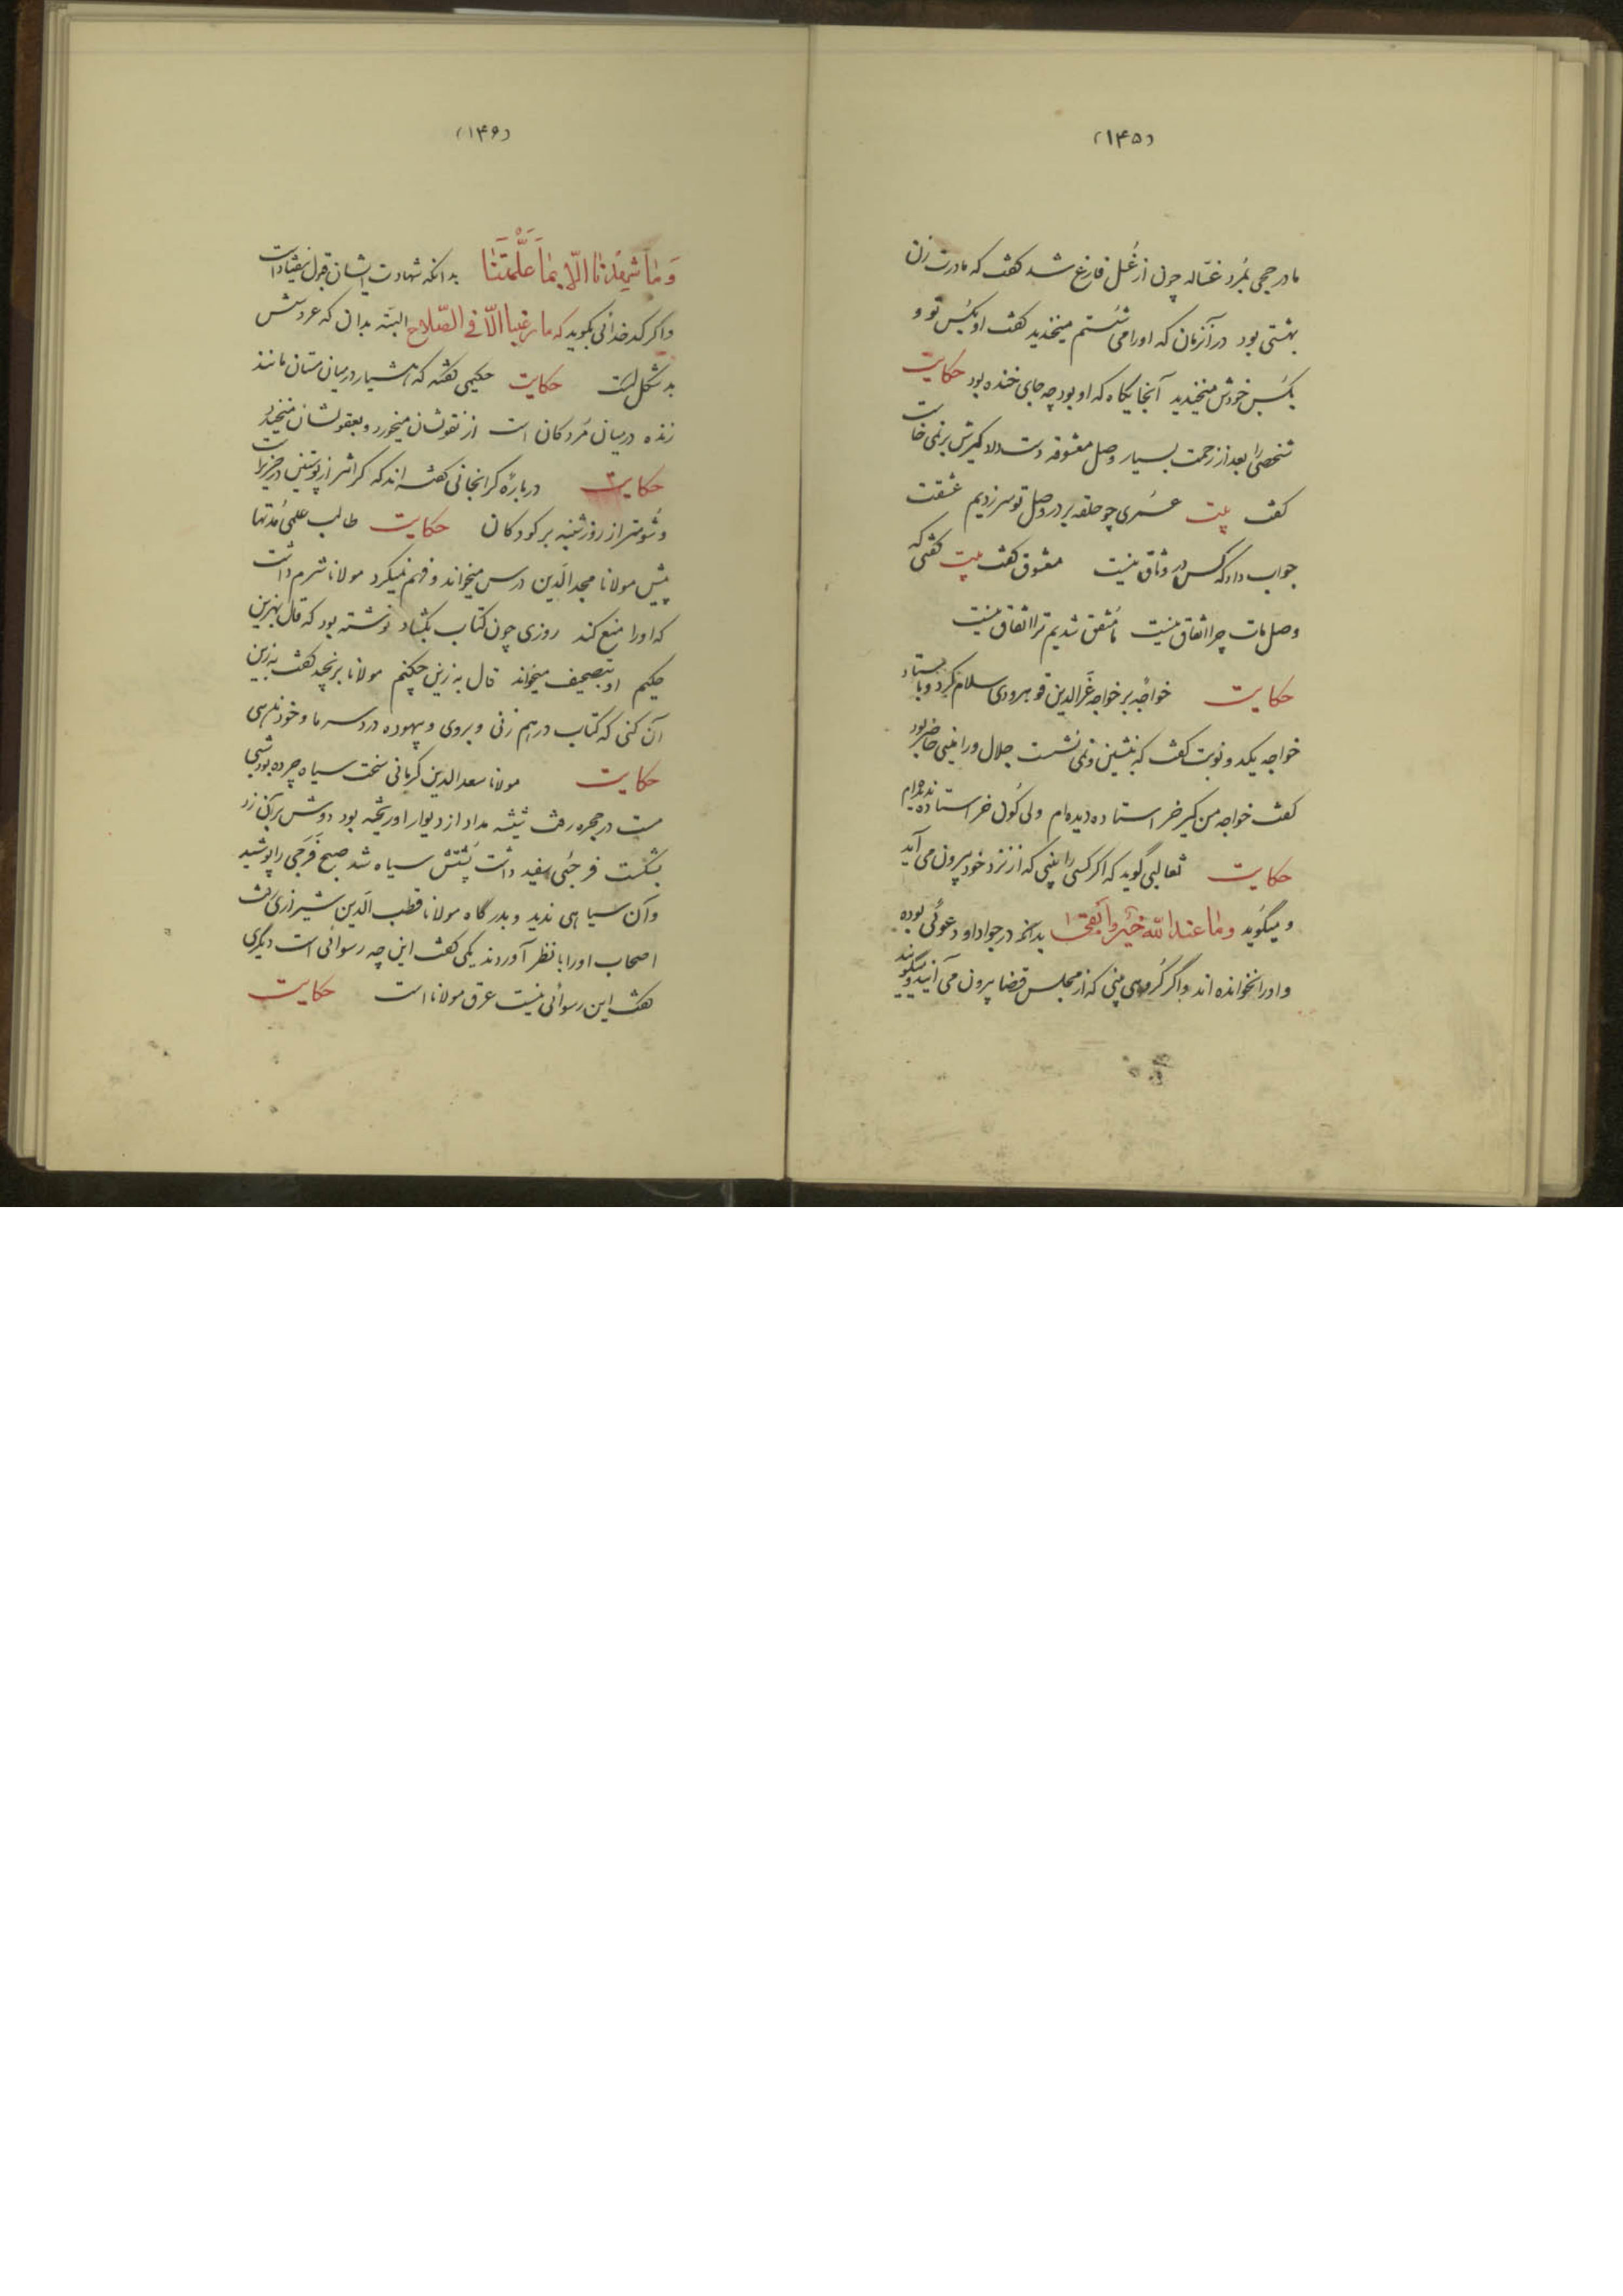 (۱۴۵)
مادر جحی بمُرد غسّاله چون از غُسل فارغ شد گفت که مادرت زن
بهشتی بود در آنزمان که اورا می شُستم میخندید گفت او بکُس تو و
بکُس خودش میخندید آنجایگاه که او بود چه جای خنده بود حکایت
شخصی را بعد از زحمت بسیار وصل معشوقه دست داد کیرش برنمی خاست
گفت بیت عُمری چو حلقه بر در وصل تو سر زدیم عشقت
جواب داد که کس در وثاق نیست معشوق گفت بیت گفتی که
وصل مات چرا اتفاق نیست ما مُتفق شدیم ترا اتفاق نیست
حکایت خواجه بر خواجه عزّالدین قوهرودی سلام کرد و باستاد
خواجه یکدو نوبت گفت که بنشین و نمی نشست جلال ورامینی حاضر بود
گفت خواجه من کیر خر استاده دیده ام ولی کُول خر استاده ندیده ام
حکایت ثعالبی گوید که اگر کسی را بینی که از نزد خود بیرون می آید
و میگوید وَمٰا عندَ اللّه خَیْرٌ وَاَبْقیٰ بدانکه در جوار او دعوئی بوده
و اورا نخوانده اند و اگر گُروهی بینی که از مجلس قضا بیرون می آیند و میگویند
(۱۴۶)
وَمٰا شَهِدْنٰا اِلّا بِمٰا عَلَّمْتَنٰا بدانکه شهادت ایشان قبول نیفتاد است
و اگر کدخدائی بگوید که ما رغبنا الّا فی الصّلاح البته بدان که عروسش
بد شکل است حکایت حکیمی گفته که هشیار در میان مستان مانند
زنده در میان مُردگان است از نقولشان میخورد و بعقولشان میخندد
حکایت درباره گرانجانی گفته اند که گرانتر از پوستین در حزیرانست
و شومتر از روز شنبه بر کودکان حکایت طالب علمی مُدتها
پیش مولانا مجدالدین درس میخواند و فهم نمیکرد مولانا شرم داشت
که اورا منع کند روزی چون کتاب بگشاد نوشته بود که قال بهزبن
حکیم او بتصحیف میخواند قال به زین چکنم مولانا برنجید گفت به زین
آن کنی که کتاب درهم زنی و بروی و بیهوده درد سر ما و خود ندهی
حکایت مولانا سعدالدین کرمانی سخت سیاه چرده بود شبی
مست در حجره رفت شیشه مداد از دیوار اویخته بود دوش بر آن زد
بشکست فرجئی سفید داشت پشتش سیاه شد صبح فَرَجی را پوشید
و آن سیاهی ندید و بدرگاه مولانا قطب الدین شیرازی رفت
اصحاب اورا با نظر آوردند یکی گفت این چه رسوائی است دیگری
گفت این رسوائی نیست عرق مولانا است حکایت